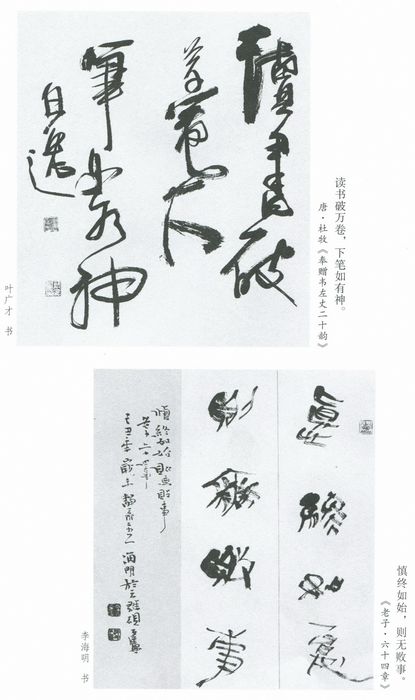 读书破万卷，下笔如有神。
唐·杜牧《奉赠韦左丈二十韵》
讀書破
萬卷下
筆如有神
叶广才 书
慎终如始，则无败事。
《老子·六十四章》
慎終如始
則無敗事
慎終如始則無敗事
老子六十四章
李海明 书